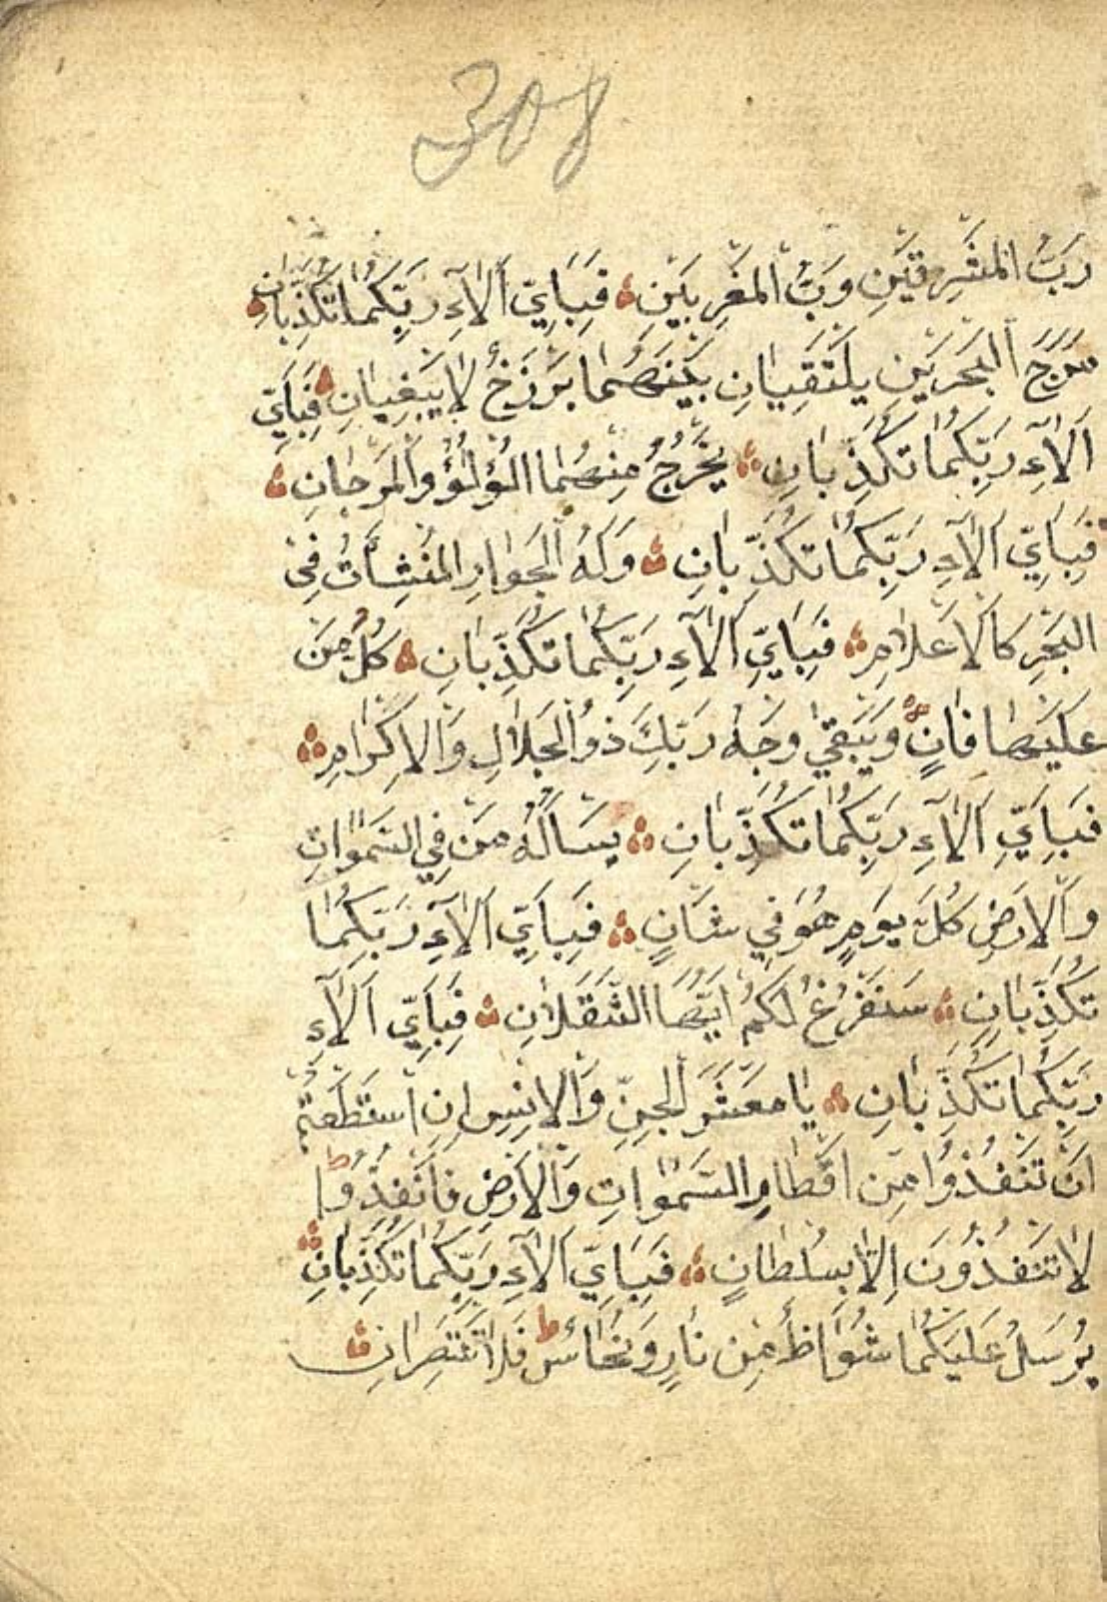 308
رَبُّ الْمَشْرِقَيْنِ وَرَبُّ الْمَغْرِبَيْنِ فَبِاَيِّ اٰلَاۤءِ رَبِّكُمَا تُكَذِّبَانِ
مَرَجَ الْبَحْرَيْنِ يَلْتَقِيَانِ بَيْنَهُمَا بَرْزَخٌ لَا يَبْغِيَانِ فَبِاَيِّ
اٰلَاۤءِ رَبِّكُمَا تُكَذِّبَانِ يَخْرُجُ مِنْهُمَا اللُّؤْلُؤُ وَالْمَرْجَانِ
فَبِاَيِّ اٰلَاۤءِ رَبِّكُمَا تُكَذِّبَانِ وَلَهُ الْجَوَارِ الْمُنْشَأٰتُ فِي
الْبَحْرِ كَالْاَعْلَامِ فَبِاَيِّ اٰلَاۤءِ رَبِّكُمَا تُكَذِّبَانِ كُلُّ مَنْ
عَلَيْهَا فَانٍ وَيَبْقٰى وَجْهُ رَبِّكَ ذُو الْجَلَالِ وَالْاِكْرَامِ
فَبِاَيِّ اٰلَاۤءِ رَبِّكُمَا تُكَذِّبَانِ يَسْاَلُهُ مَنْ فِي السَّمٰوَاتِ
وَالْاَرْضِ كُلَّ يَوْمٍ هُوَ فِي شَانٍ فَبِاَيِّ اٰلَاۤءِ رَبِّكُمَا
تُكَذِّبَانِ سَنَفْرُغُ لَكُمْ اَيُّهَا الثَّقَلَانِ فَبِاَيِّ اٰلَاۤءِ
رَبِّكُمَا تُكَذِّبَانِ يَا مَعْشَرَ الْجِنِّ وَالْاِنْسِ اِنِ اسْتَطَعْتُمْ
اَنْ تَنْفُذُوا مِنْ اَقْطَارِ السَّمٰوَاتِ وَالْاَرْضِ فَانْفُذُوا ط
لَا تَنْفُذُونَ اِلَّا بِسُلْطَانٍ فَبِاَيِّ اٰلَاۤءِ رَبِّكُمَا تُكَذِّبَانِ
يُرْسَلُ عَلَيْكُمَا شُوَاظٌ مِنْ نَارٍ وَنُحَاسٌ ط فَلَا تَنْتَصِرَانِ